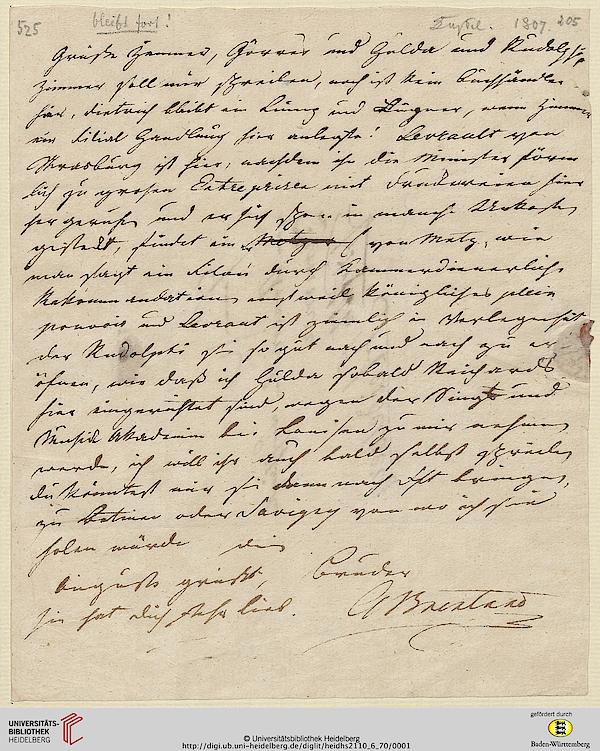 525 bleibt fort! Cassel. 1807 205
Grüße Zimmer, Görres und Hulda und Rudolphi
Zimmer soll mir schreiben, noch ist kein Buchhändler
hier, dietrich bleibt ein Lump und Lügner, wenn Zimmer
eine Filial Handlung hier anlegte! Levrault von
Strasburg ist hier, nachdem ihn die Minister förm
lich zu großen Entreprisen mit Druckereien hier
her gerufen und er sich schon in manche Unkosten
gesteckt, findet ein von Metz, wie
man sagt ein durch Kammerdienerliche
Rekommandation einstweil königliches plein
pouvoir und Levrault ist ziemlich in Verlegenheit
der Rudolphi ist so gut nach und nach zu er
öfnen, wie daß ich Hulda sobald Reichards
hier eingerichtet sind, wegen der Sing und
Musick Akademie bei Louisen zu mir nehmen
werde, ich will ihr auch bald selbst schreiben
du könntest mir sie dann nach bringen,
zu Bettinen oder Savigny von wo ich sie
holen würde dein
Auguste grüßt, Bruder
sie hat dich sehr lieb. C Brentano
UNIVERSITÄTS-
BIBLIOTHEK
HEIDELBERG
© Universitätsbibliothek Heidelberg
http://digi.ub.uni-heidelberg.de/diglit/heidhs2110_6_70/0001
gefördert durch
Baden-Württemberg